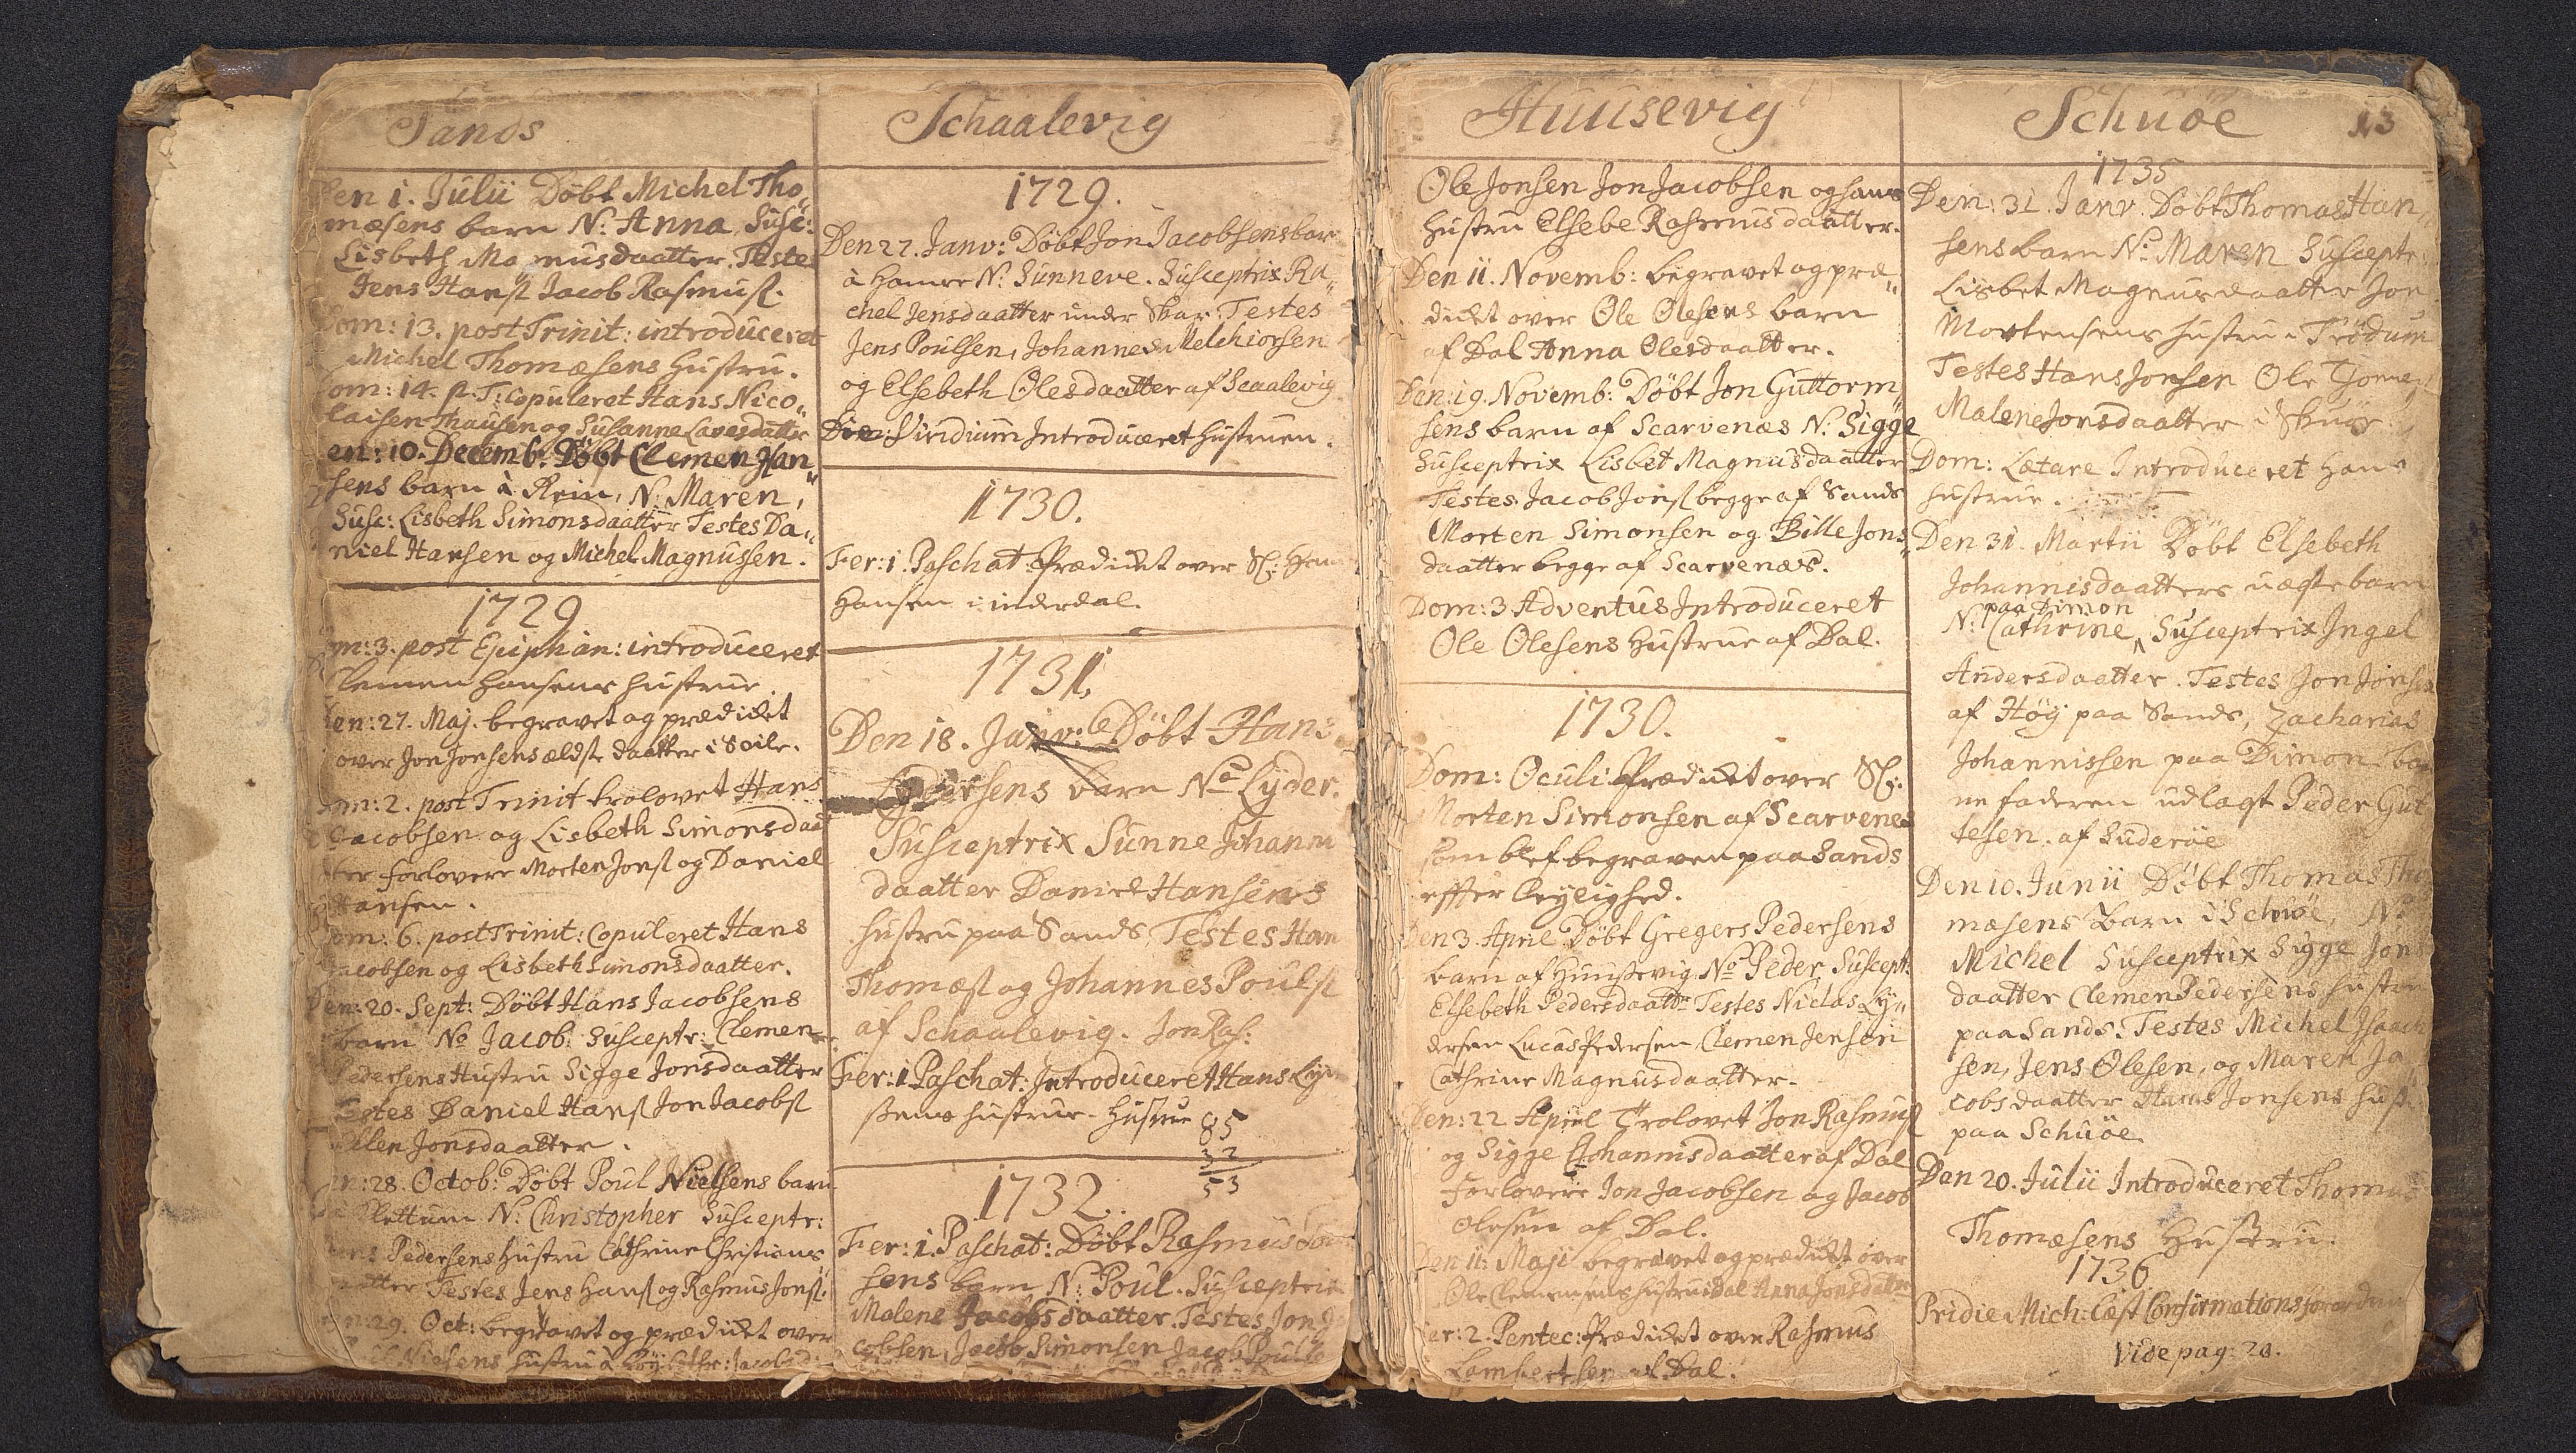 Sands
Den 1. Julii Döbt Michel Tho„
mæsens barn N: Anna Susc:
Lisbeth Ma nusdaatter. Testes
Jens Hansſ Jacob Rasmusſ.
Dom: 13. post Trinit: introduceret
Michel Thomæsens Hustru.
Dom: 14. p. T: Copuleret Hans Nico„
laisen Thausen og Susanne Lavesdatter
en: 10. Decemb: Döbt Clemen Han„
sens barn à Rein, N: Maren,
Susc: Lisbeth Simonsdaatter Testes Da„
niel Hansen og Michel Magnussen.
1729
om: 3. post Epiphan: introduceret
Clemen Hansens Hustrue.
en: 27. Maj. begravet og prædicket
over Jon Jonsens ældste daatter i Soile.
om: 2. post Trinit trolovet Hans
Jacobsen og Lisbeth Simonsdaat
ter forlovere Morten Jonsſ og Daniel
Hansen.
om: 6. post Trinit: Copuleret Hans
Jacobsen og Lisbeth Simonsdaatter.
Den: 20. Sept: Döbt Hans Jacobsens
barn No Jacob: Susceptr: Clemen
Pedersens Hustru Sigge Jonsdaatter
Testes Daniel Hansſ Jon Jacobsſ
Jonsdaatter.
en: 28. Octob: Döbt Poul Nielsens barn
N: Christopher Susceptr:
Pedersens Hustru Cathrine Christians„
daatter Testes Jens Hansſ og Rasmus Jonsſ.
en: 29. Oct: begravet og prædicket over
Nielsens Hustru à Höy Jacobsd:
Schaalevig
1729.
Den 27. Janv: Döbt Jon Jacobsens barn
à Hamre N: Sunneve. Susceptrix Ra„
chel Jensdaatter under Skar. Testes
Jens Poulsen, Johannes Melchiorsen
og Elsebeth Olesdaatter af Scaalevig
Die: Viridium Introduceret Hustruen.
1730.
Fer: 1. Paschat: Prædicket over Sl: Hans
Hansen i inderdal.
1731.
Den 18. Janv: Döbt Hans
Lydersens barn No Lyder.
Susceptrix Sunne Johann
daatter Daniel Hansens
Hustru paa Sands, Testes Han
Thomæsſ og Johannes Poulsſ
af Schaalevig. Jon Ras:
Fer: 1 Paschat: Introduceret Hans Lyd
sens Hustrue. Hustrue 85
32
53
1732.
Fer: 1. Paschat: Döbt Rasmus
sens barn N: Poul. Susceptrix
Malene Jacobsdaatter. Testes Jon Ja
cobsen, Jacob Simonsen Jacob Poulse
Huusevig
Ole Jonsen Jon Jacobsen og hans
Hustru Elsebe Rasmusdaatter.
Den 11. Novemb: begravet og præ„
dicket over Ole Olesens barn
af Dal Anna Olesdaatter.
Den: 19. Novemb: Döbt Jon Guttorm„
sens barn af Scarvenæs N: Sigge
Susceptrix Lisbet Magnusdaatter
Testes Jacob Jonsſ begge af Sands
Morten Simonsen og Bille Jons„
daatter begge af Scarvenæs.
Dom: 3 Adventus Introduceret
Ole Olesens Hustrue af Dal.
1730.
Dom: Oculi Prædicket over Sl:
Morten Simonsen af Scarvenes
som blef begraven paa Sands
effter leylighed.
Den 3. April Döbt Gregers Pedersens
barn af Huusevig No Peder Suscept:
Elsebeth Pedersdaattr Testes Niclas Ly„
dersen Lucas Pedersen Clemen Jensen
Cathrine Magnusdaatter.
Den: 22 April Trolovet Jon Rasmusſ
og Sigge Johannisdaatter af Dal
Forlovere Jon Jacobsen og Jacob
Olesen af Dal.
Den 11. Maji begravet og prædicket over
Ole Clemensens Hustru i Dal Anna Jonsdatter
Fer: 2. Pentec: Prædicket over Rasmus
Lambertsen af Dal.
Schuöe 13
1735
Den: 31. Janv. Döbt Thomas Han„
sens barn No Maren Susceptr:
Lisbet Magnusdaatter Jon
Mortensens Hustru i Trödum
Testes Hans Jonsen Ole
Malene Jonsdaatter i Skuöe
Dom: Lætare Introduceret hans
Hustrue.
Den 31. Martii Döbt Elsebeth
Johannisdaatters uægte barn
paa Dimon
N: Cathrine, Susceptrix Ingel
Andersdaatter. Testes Jon Jonsen
af Höy paa Sands, Zacharias
Johannissen paa Dimon. bar
ne faderen udlagt Peder Gut
tesen. af Suderöe
Den 10. Junii Döbt Thomas Tho
mæsens barn i Schuöe, No
Michel Susceptrix Sigge Jons
daatter Clemen Pedersens Hustru
paa Sands. Testes Michel Isaach
sen, Jens Olesen, og Maren Ja
cobsdaatter Hans Jonsens Hust.
paa Schuöe
Den 20. Julii Introduceret Thomas
Thomæsens Hustru.
1736
Pridie Mich: læst Confirmations forordn
vide pag: 20.